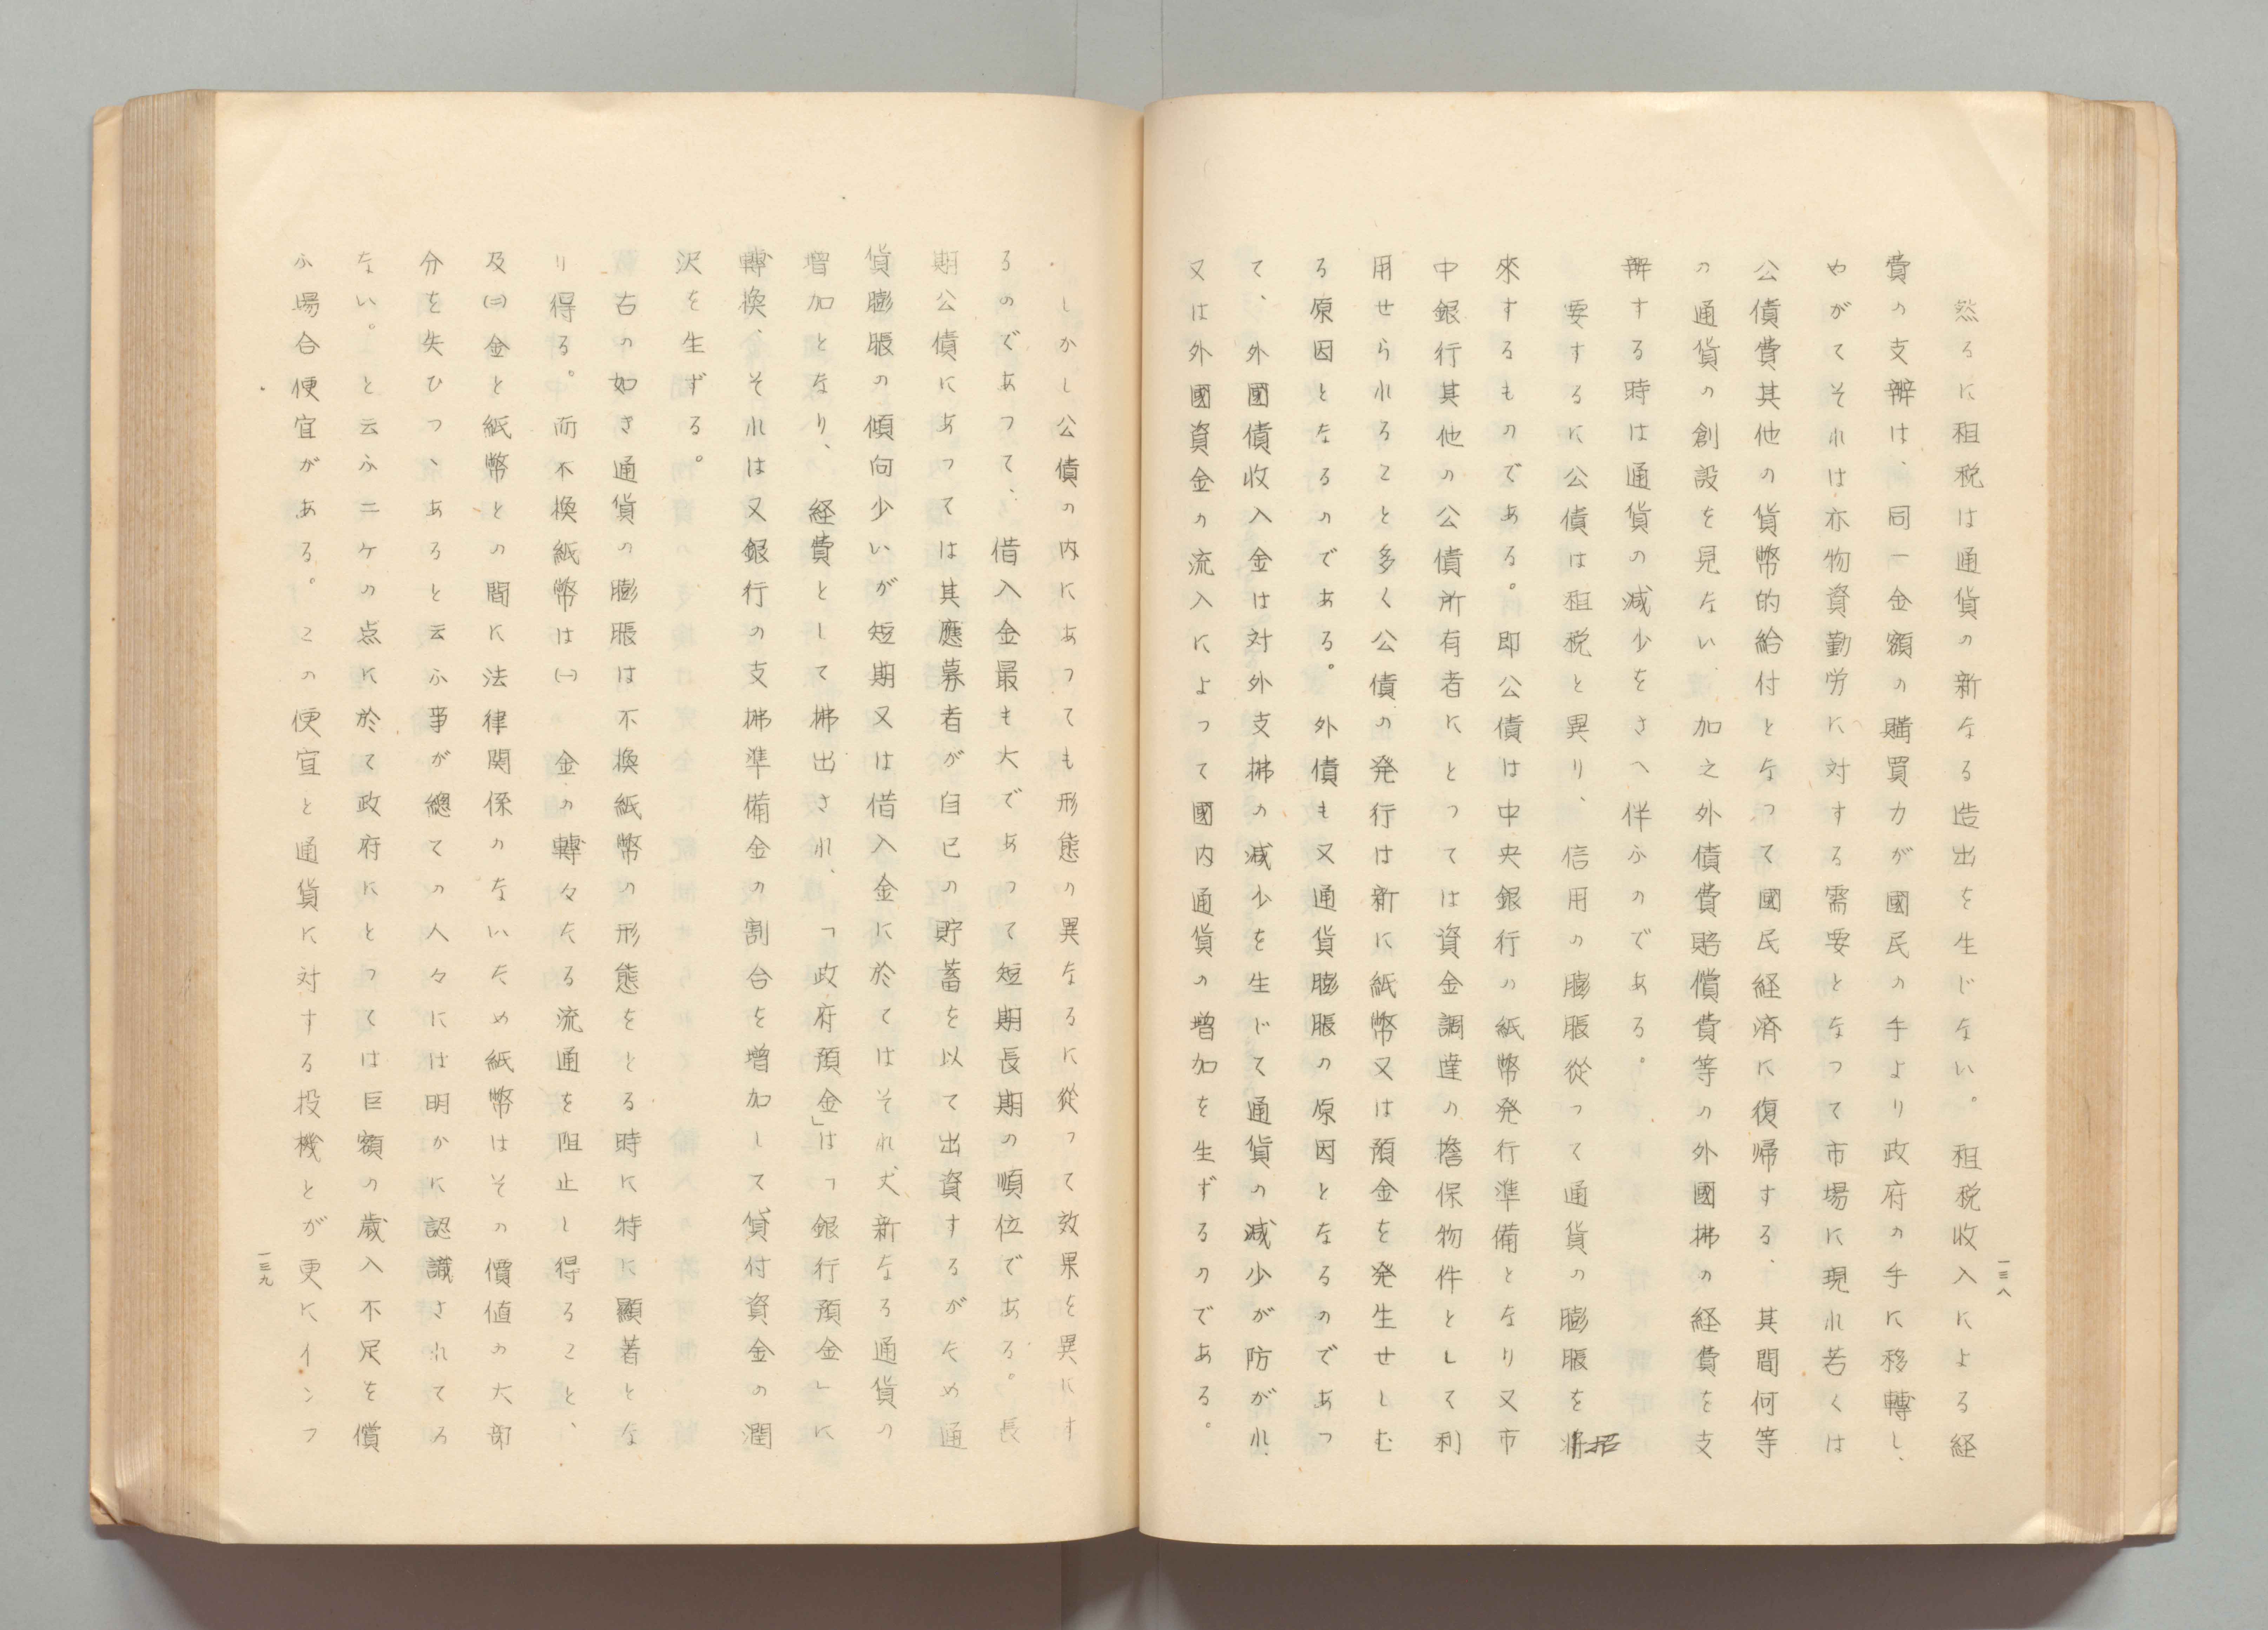 然るに租税は通貨の新なる造出を生じない。租税收入による経
費の支辦は、同一金額の購買力が國民の手より政府の手に移轉し、
やがてそれは亦物資勤労に対する需要となつて市場に現れ若くは
公債費其他の貨幣的給付となつて國民経済に復帰する、其間何等
の通貨の創設を見ない、加之外債費賠償費等の外國拂の経費を支
辦する時は通貨の減少をさへ伴ふのである。
要するに公債は租税と異り、信用の膨脹從つて通貨の膨脹を招
來するものである。即公債は中央銀行の紙幣発行準備となり又市
中銀行其他の公債所有者にとつては資金調達の擔保物件として利
用せられること多く公債の発行は新に紙幣又は預金を発生せしむ
る原因となるのである。外債も又通貨膨脹の原因となるのであつ
て、外國債收入金は対外支拂の減少を生じて通貨の減少が防がれ、
又は外國資金の流入によつて國内通貨の増加を生ずるのである。
一三八
しかし公債の内にあつても形態の異なるに從つて效果を異にす
るのであつて、借入金最も大であつて短期長期の順位である。長
期公債にあつては其應募者が自己の貯蓄を以て出資するがため通
貨膨脹の傾向少いが短期又は借入金に於てはそれ丈新なる通貨の
増加となり、経費として拂出され、「政府預金」は「銀行預金」に
轉換、それは又銀行の支拂準備金の割合を増加して貸付資金の潤
沢を生ずる。
右の如き通貨の膨脹は不換紙幣の形態をとる時に特に顯著とな
り得る。而不換紙幣は㈠金の轉々たる流通を阻止し得ること、
及㈡金と紙幣との間に法律関係のないため紙幣はその價値の大部
分を失ひつヽあると云ふ事が總ての人々には明かに認識されてる
ない。と云ふ二ケの点に於て政府にとつては巨額の歳入不足を償
ふ場合便宜がある。この便宜と通貨に対する投機とが更にインフ
一三九